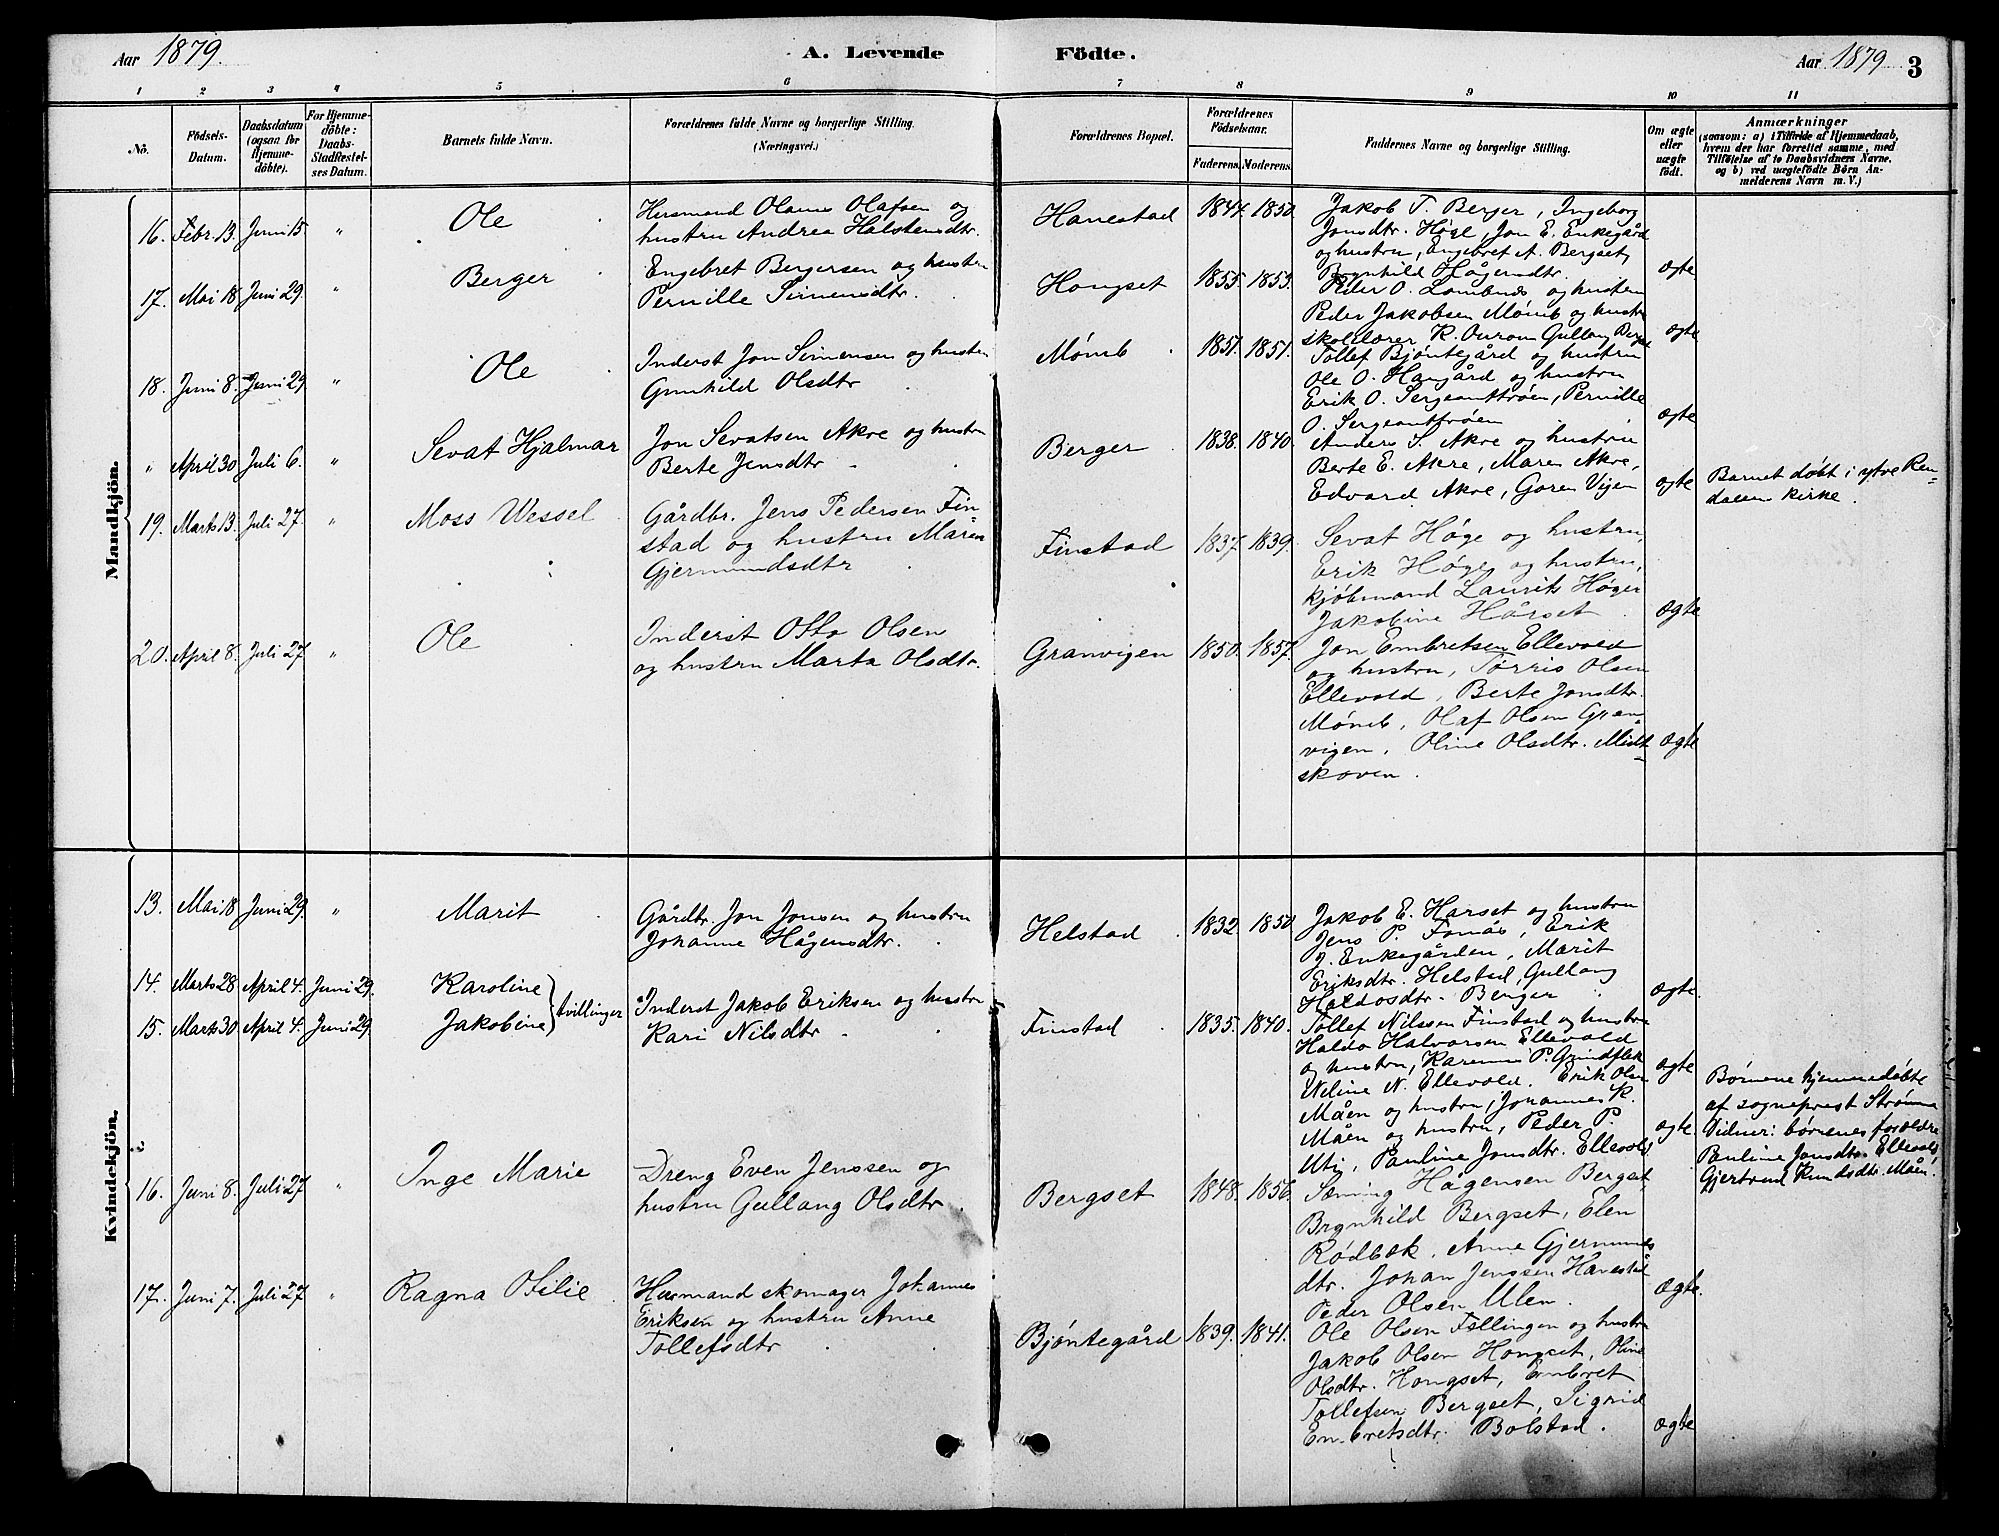 Aar 1879. A. Levende Födte. Aar 1879 3
1 2 3 4 5 6 7 8 9 10 11
No.
Födsels-
Datum.
Daabsdatum
(ogsaa for
Hjemme-
döbte).
For Hjemme-
döbte:
Daabs-
Stadfæstel-
ses Datum.
Barnets fulde Navn.
Forældrenes fulde Navne og borgerlige Stilling.
(Næringsvei.)
Forældrenes Bopæl.
Forældrenes
Födselsaar.
Faderens. Moderens.
Faddernes Navne og borgerlige Stilling.
Om ægte
eller
uægte
födt.
Anmærkninger
(saasom: a) i Tilfælde af Hjemmedaab,
hvem der har forrettet samme, med
Tilföielse af to Daabsvidners Navne,
og b) ved uægtefödte Börn An-
melderens Navn m. V.)
Mandkjön.
16. Febr. 13. Juni 15 "
Ole
Husmand Olaus Olafsen og
hustru Andrea Halstensdtr.
Hanestad
1844. 1850.
Jakob T. Berger, Ingeborg
Jonsdtr. Høge, Jon E. Enkegård
og hustru, Engebret A. Bergset,
Brynhild Hågensdtr.
ægte
17. Mai 18. Juni 29. "
Berger
Engebret Bergersen og hustru
Pernille Simensdtr.
Hongset
1855. 1853.
Peder O. Lombnæs og hustru
Peder Jakobsen Mømb og hustru
skolelærer K. Ouram Gullaug Berget
ægte
18. Juni 8. Juni 29 "
Ole
Inderst Jon Simensen og hustru
Gunhild Olsdtr
Mømb
1851. 1851.
Tollef Bjøntegård og hustru
Ole O. Haugård og hustru
Erik O. Sergeanttrøen, Pernille
O. Sergeanttrøen
ægte
" April 30 Juli 6. "
Sevat Hjalmar
Jon Sevatsen Akre og hustru
Berte Jensdtr
Berger
1838. 1840.
Anders S. Akre og hustru
Berte E. Akre, Maren Akre,
Edvard Akre, Goren Vigen
ægte
Barnet døbt i ytre Ren-
dalen kirke.
19. Marts 13. Juli 27. "
Moss Wessel
Gårdbr. Jens Pedersen Fin
stad og hustru Maren
Gjermundsdtr
Finstad
1837. 1839.
Sevat Høge og hustru,
Erik Høge og hustru,
kjøbmand Laurits Høger
Jakobine Hårset
ægte
20. April 8. Juli 27 "
Ole
Inderst Otto Olsen
og hustru Marta Olsdtr.
Granvigen
1850. 1857.
Jon Embretsen Ellevold
og hustru, Tørris Olsen
Ellevold, Berte Jonsdtr.
Mømb, Olaf Olsen Gran
vigen, Oline Olsdtr. Midt-
skoven.
ægte
Kvindekjön.
13. Mai 18 Juni 29. "
Marit
Gårdbr. Jon Jonsen og hustru
Johanne Hågensdtr.
Helstad
1832. 1850
Jakob E. Harset og hustru
Jens P. Fonås, Erik
J. Enkegården, Marit
Eriksdtr. Helstad, Gullaug
Haldosdtr. Berger
ægte.
14. Marts 28 April 4. Juni 29.
15. Marts 30 April 4. Juni 29.
Karoline
Jakobine
tvillinger
Inderst Jakob Eriksen og hustru
Kari Nilsdtr
Finstad
1835. 1840.
Tollef Nilssen Finstad og hustru
Haldo Halvorsen Ellevold
og hustru, Karenus P. Grindflek
Neline N. Ellevold. Erik Olsen
Måen og hustru, Johannes K.
Måen og hustru, Peder P.
Uti, Pauline Jonsdtr. Ellevold
ægte
ægte
Børnene hjemmedøbte
af sogneprest Strømme
Vidner: børnenes forældre
Pauline Jonsdtr. Ellevold,
Gjertrud Knudsdtr. Måen.
16. Juni 8. Juli 27 "
Inge Marie
Dreng Even Jenssen og
hustru Gullaug Olsdtr.
Bergset
1848. 1856.
Sæming Hågensen Bergset,
Brynhild Bergset, Elen
Rødbæk. Anne Gjermunds
dtr. Johan Jenssen Hanestad
Peder Olsen Ulen.
ægte.
17. Juni 7. Juli 27 "
Ragna Otilie
Husmand skomager Johannes
Eriksen og hustru Anne
Tollefsdtr
Bjøntegård
1839. 1841.
Ole Olsen Fellingen og hustru
Jakob Olsen Hongset, Oline
Olsdtr. Hongset, Embret
Tollefsen Bergset, Sigrid
Embretsdtr. Bolstad.
ægte